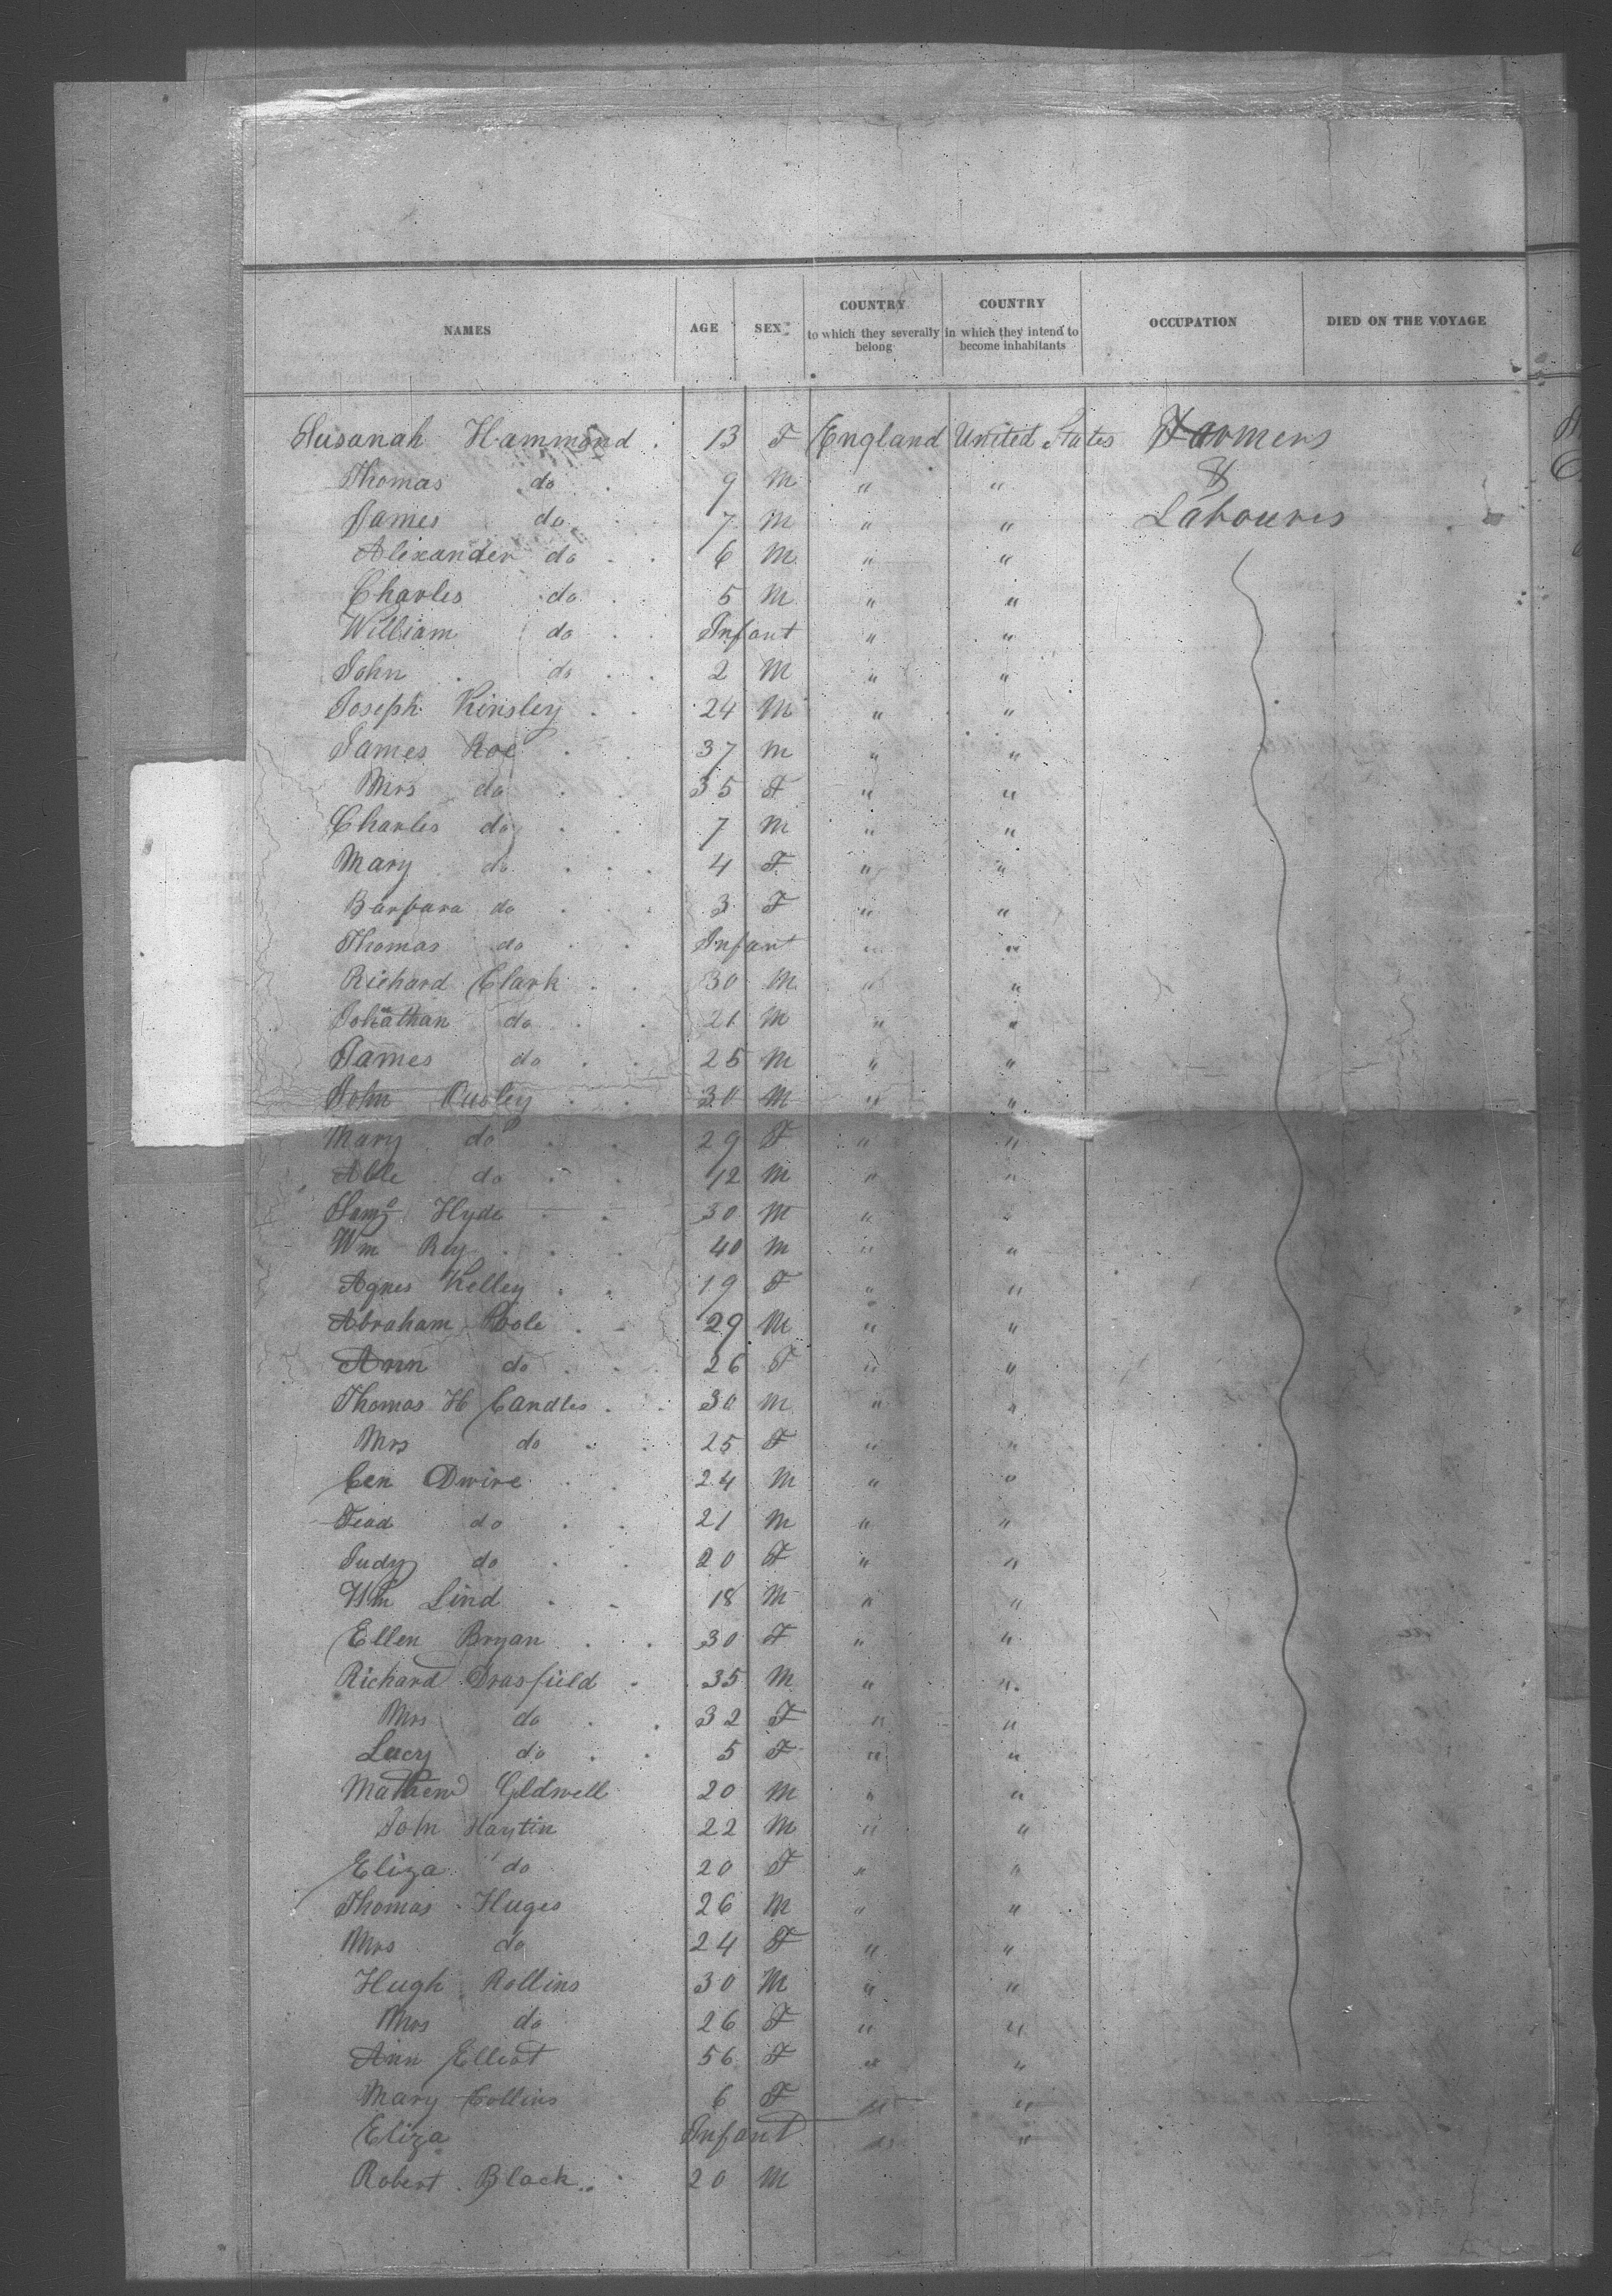 NAMES AGE SEX COUNTRY to which they severally belong COUNTRY in which they intend to become inhabitants OCCUPATION DIED ON THE VOYAGE
Susanah Hammond 13 F England United States Farmers
Thomas do 9 M " " &
James do 7 M " " Labourers
Alexander do 6 M " "
Charles do 5 M " "
William do Infant " "
John do 2 M " "
Joseph Kinsley 24 M " "
James Roe 37 M " "
Mrs do 35 F " "
Charles do 7 M " "
Mary do 4 F " "
Barbara do 3 F " "
Thomas do Infant " "
Richard Clark 30 M " "
Jonathan do 21 M " "
James do 25 M " "
John Ousley 30 M " "
Mary do 29 F " "
Able do 12 M " "
Hyde 30 M " "
Wm Rey 40 M " "
Agnes Kelley 19 F " "
Abraham Poole 29 M " "
Ann do 26 F " "
Thomas H Candles 30 M " "
Mrs do 25 F " "
Dwire 24 M " "
do 21 M " "
Judy do 20 F " "
Wm Lind 18 M " "
Ellen Bryan 30 F " "
Richard Drasfield 35 M " "
Mrs do 32 F " "
Lucy do 5 F " "
Mathew Gldwell 20 M " "
John Haytin 22 M " "
Eliza do 20 F " "
Thomas Huges 26 M " "
Mrs do 24 F " "
Hugh Rollins 30 M " "
Mrs do 26 F " "
Ann Elliot 56 F " "
Mary Collins 6 F " "
Eliza Infant " "
Robert Black 20 M